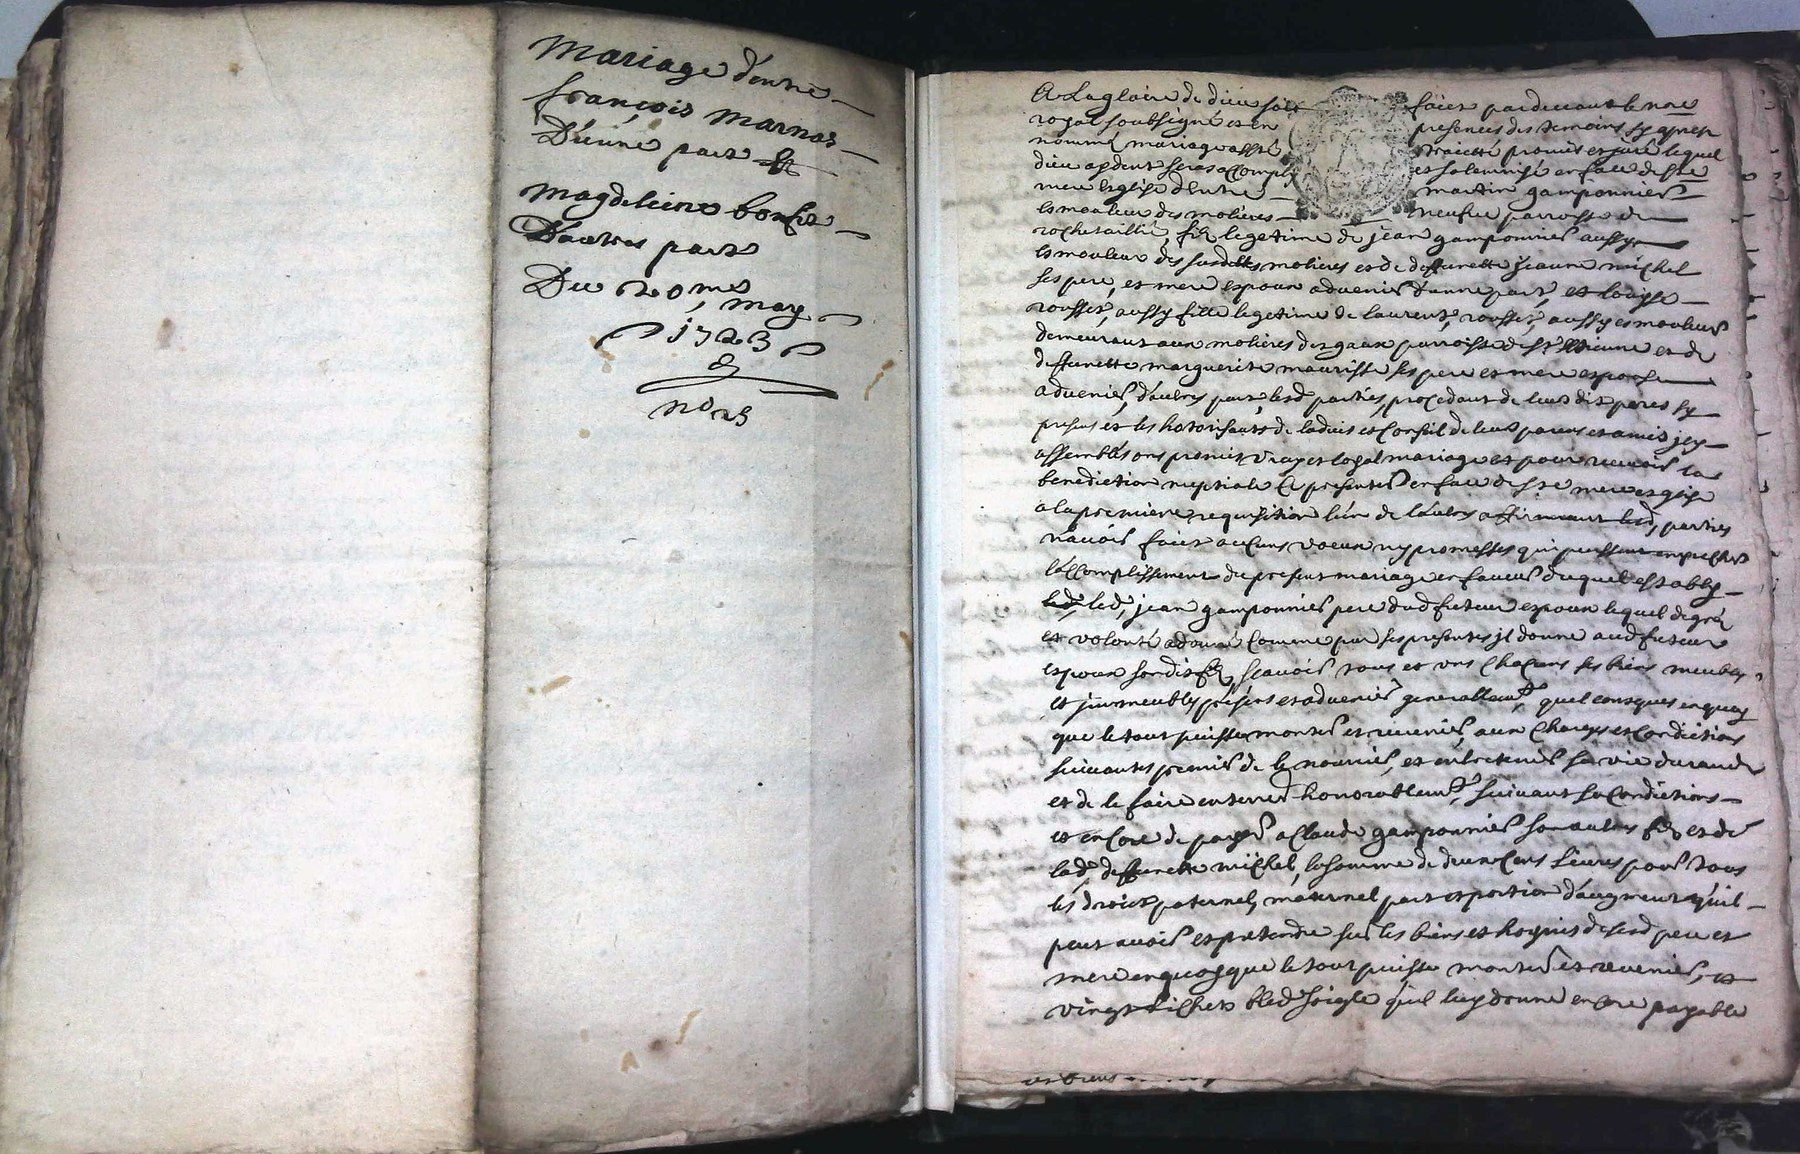 Mariage d'entre
françois marnas
D'une part &
magdeleine bonche
D'autres part
Du 20me may
1723
&
no 23
A La gloire de dieu soit faict pardevant le nore
royal soubsigné et en presences des temoins cy apres
nommés mariage a esté traicté promis et juré lequel
dieu aydent seras accomply et solemnisé en face de ste
mere Esglise d'Entre martin gamponnier
esmouleur des molieres neufve parroisse de
rochetaillié, fils legetime de jean gamponnier aussy
esmouleur des susdittes molieres et de deffunette jeanne michel
ses pere, et mere espoux advenir d'une part, et louyse
rousset, aussy fille legetime de laurent rousset, aussy esmouleur
demeurant aux molieres des gaux parroisse de st estienne et de
deffunette marguerite mourisse ses pere et mere espouse
advenir, d'autres part, lesd parties procedant de leurs dits peres cy
presens et les hotorisants de l'advis et Conseil de leurs parens et amis icy
assemblés ons promis vray et loyal mariage et pour recevoir la
benediction nuptiale Ce presenter en face de ste mere esglise
a la premiere requisition l'un de l'autres affirmant lesd, parties
n'avoir faict aucuns voeux ny promesses qui puissent empecher
l'accomplissement du present mariage en faveur duquel estably
led, jean gamponnier pere dud futeur espoux lequel de gré
et volonté a donné Comme par ses presentes jl donne aud futeur
espoux sondit fils, scavoir tous et uns Chacuns ses biens meubles
et jmmeubles présens et advenir generallemt, quelconsques en quoy
que le tout puisse monter et revenir, aux Charges et Condictions
suivantes premier de le nourrir, et entretenir sa vie durande
et de le faire enterrer honorablemt, suivant sa Condictions
et enCore de payer a Claude gamponnier son autres fils et de
lad deffunette michel, la somme de deux Cens livres pour tous
les droict paternel, maternel part et portion d'augment qu'il
peut avoir et pretendre sur les biens et hoyries de sesd pere et
mere en quoy que le tout puisse monter et revenir, et
vingt bichets bled soigle qu'il luy donne enCore payable